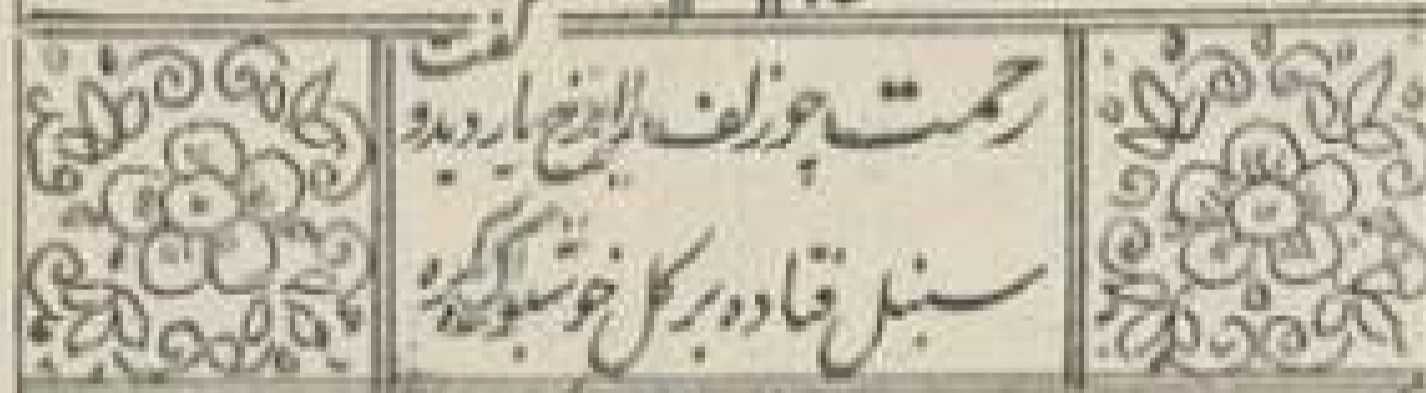 رحمت چو زلف را برخ یار دید و گفت
سنبل فتاده بر گل خوشبو